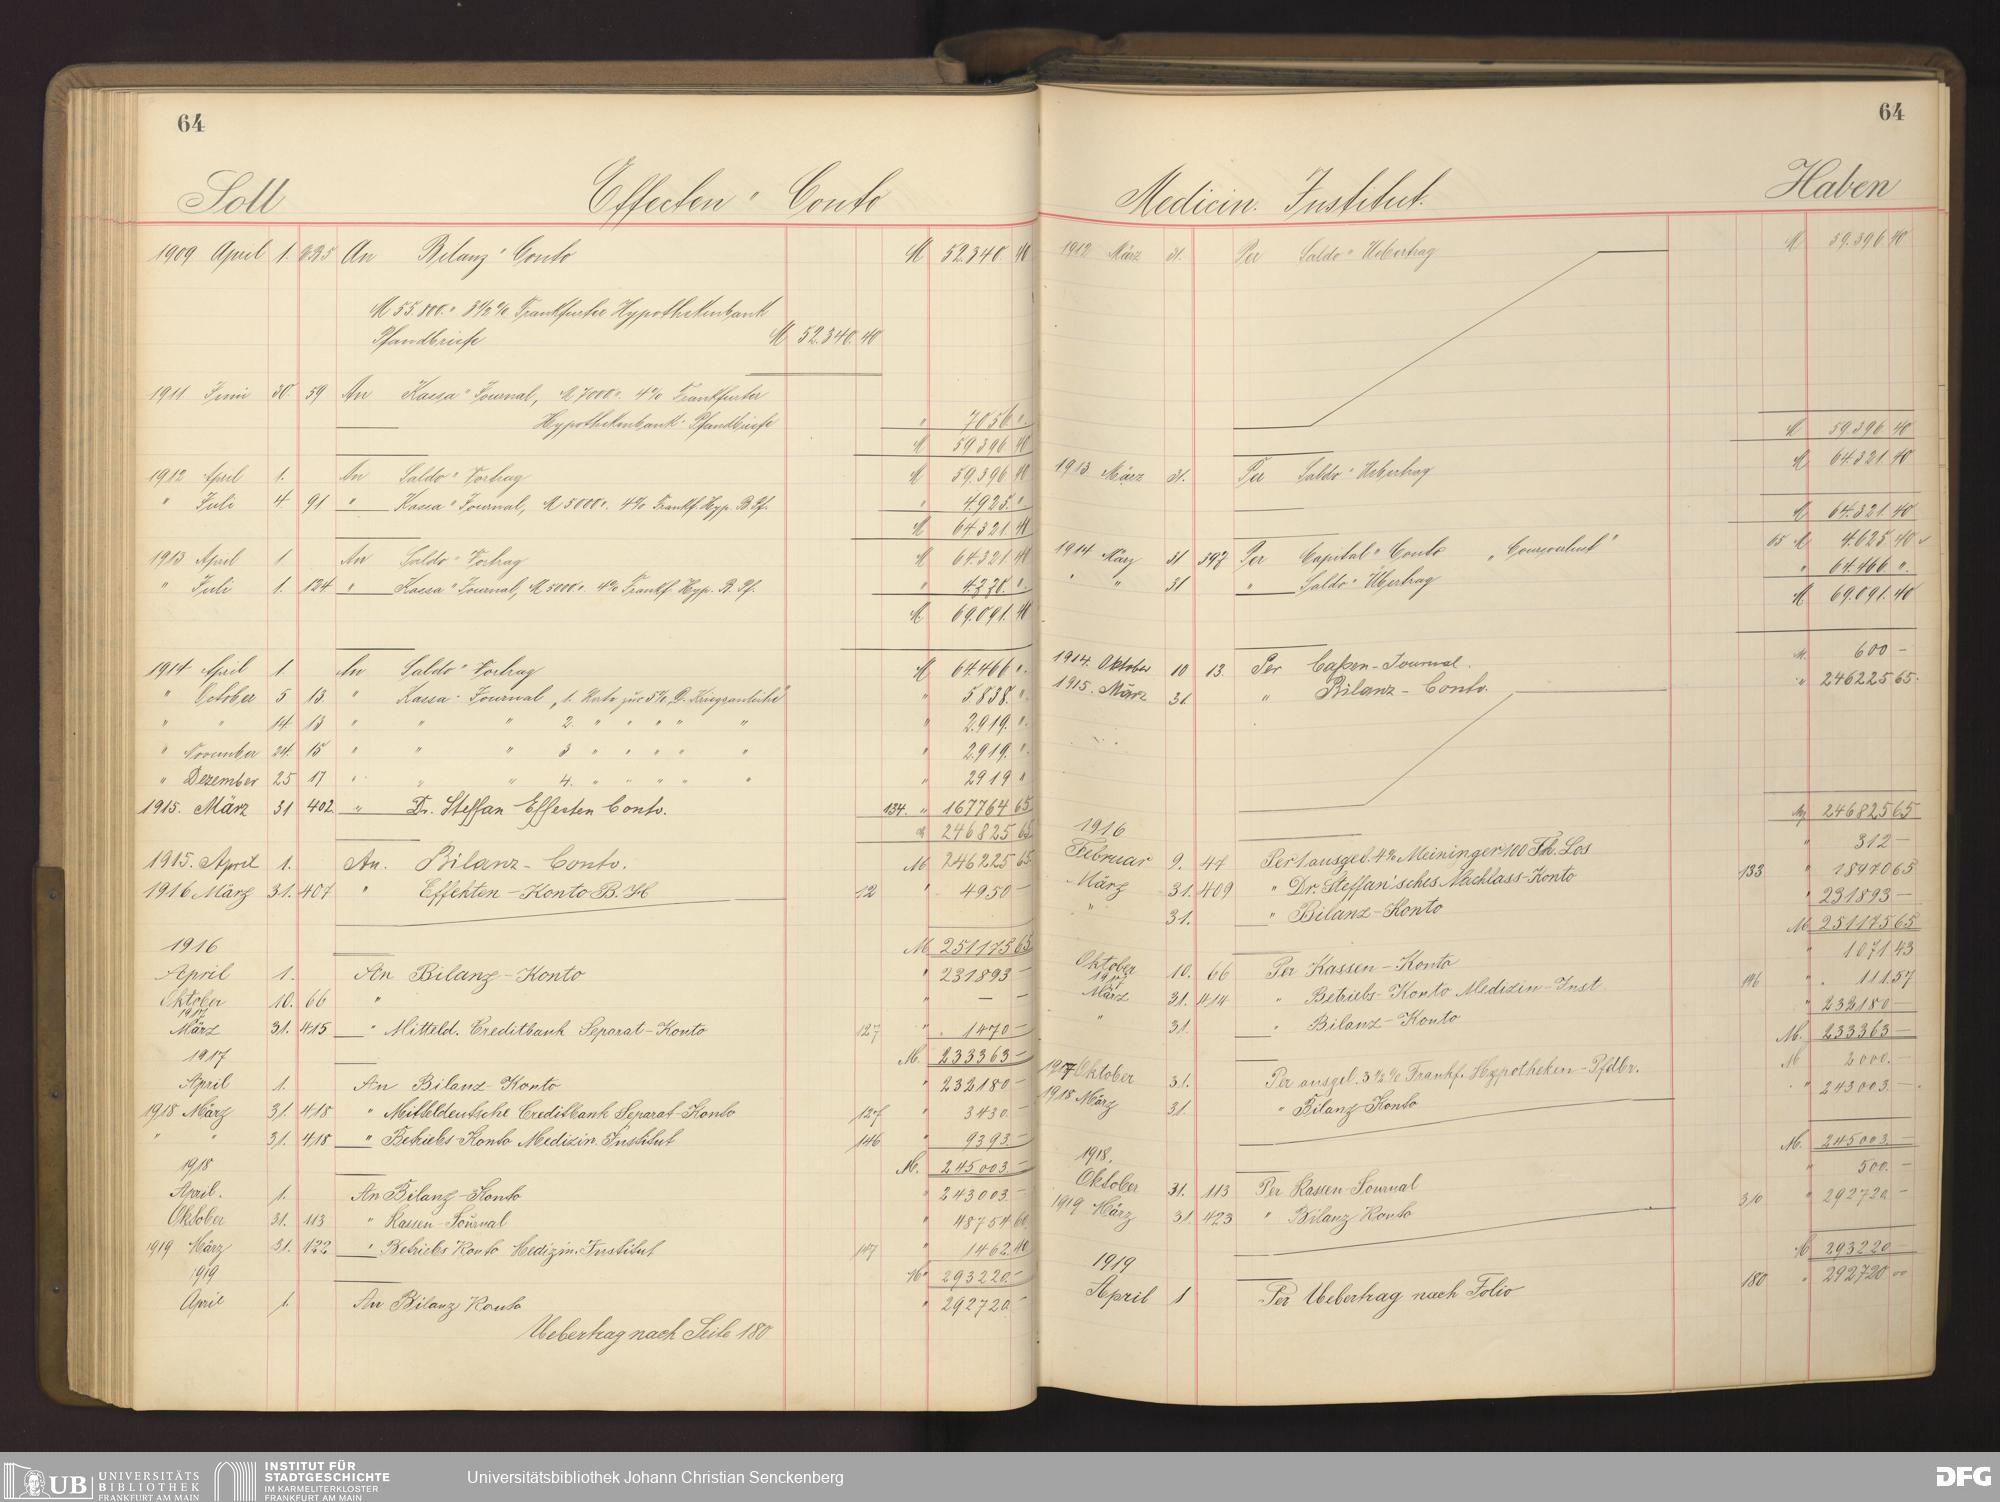 64
Soll Effecten " Conto
1909 April 1. An Bilanz " Conto M 52.340. 40
M 55.800." 3 1/2 % Frankfurter Hypothekenbank
Pfandbriefe M 52.340. 40
1911 Juni 30. 59 An Kassa " Journal, M 7000". 4% Frankfurter
Hypothekenbank " Pfandbriefe " 7056 ".
M 59.396 40
1912 April 1. An Saldo " Vortrag M 59.396 40
" Juli 4. 91 " Kassa " Journal, M 5000". 4% Frankf. Hyp. B. Pf. " 4.925. ".
M 64.321. 40
1913 April 1 An Saldo " Vortrag M 64.321. 40
" Juli 1. 124 " Kassa " Journal, M 5000". 4% Frankf. Hyp. B. Pf. " 4.770. ".
M 69.091. 40
1914 April 1. An Saldo " Vortrag M 64.466 ".
" October 5 13. " Kassa " Journal " 1. Kosto zur 5% D. Kriegsanleihe " 5.838. ".
" " 14 13 " " " 2. " " " " " " 2.919. ".
" November 24. 15 " " " 3 " " " " " " 2.919. ".
" Dezember 25 17 " " " 4. " " " " " " 2919 "
1915. März 31 402 " Dr. Steffan Effecten Conto. 134. " 167764 65
M 246825 65
1915. April 1. An. Bilanz - Conto. M 246225 65.
1916 März 31. 407 " Effekten - Konto B. H 12 " 4950 -
1916 M 251175 65
April 1. An Bilanz - Konto " 231893 -
Oktober 10. 66 " " - -
1917
März 31. 415 " Mitteld. Creditbank Separat - Konto 127 " 1470 -
1917 M. 233363 -
April 1. An Bilanz - Konto " 232180 -
1918 März 31. 418 " Mitteldeutsche Creditbank Separat - Konto 127 " 3430. -
" " 31. 418 " Betriebs - Konto Medizin. Institut 146 " 9393 -
1918 M. 245003. -
April. 1. An Bilanz - Konto " 243003. -
Oktober 31. 113 " Kassen - Journal " 48754 60
1919 März 31. 422 " Betriebs Konto Medizin. Institut 147 " 1462. 40
1919 M " 293220. -
April 1. An Bilanz Konto " 292720. -
Uebertrag nach Seite 180
64
Medicin. Institut. Haben
1912 März 31. Per Saldo " Uebertrag M 59.396 40
M 59.396 40
1913 März 31. Per Saldo " Uebertrag M 64.321. 40
M 64.321. 40
1914 März 31 397 Per Capital " Conto 65 M 4.625. 40
" " 31 " Saldo " Übertrag " 64.466. ".
M 69.091. 40
1914. Oktober 10 13. Per Caßen - Journal. M. 600 -
1915. März 31. " Bilanz - Conto. " 246225 65.
246825 65
1916
Februar 9. 47 Per 1 ausgel. 4% Meininger 100 Th. Los " 312 -
März 31. 409 " Dr. Steffan'sches Nachlass - Konto 133 " 18970 65
" 31. " Bilanz - Konto " 231893 -
M 251175 65
Oktober 10. 66 Per Kassen - Konto " 1071 43
1917
März 31. 414 " Betriebs - Konto Medizin - Inst 146 " 111.57
" 31. " Bilanz - Konto " 232180 -
M. 233363 -
1917 Oktober 31. Per ausgel. 3 1/2 % Frankf. Hypotheken - Pfdbr. M 2000. -
1918 März 31. " Bilanz - Konto " 243003. -
M. 245003. -
1918.
Oktober 31. 113 Per Kassen - Journal " 500. -
1919 März 31. 423 " Bilanz Konto 310 " 292720. -
M 293220 -
1919
April 1 Per Uebertrag nach Folio 180 " 292720 -
UB UNIVERSITÄTS
BIBLIOTHEK
FRANKFURT AM MAIN
INSTITUT FÜR
STADTGESCHICHTE
IM KARMELITERKLOSTER
FRANKFURT AM MAIN
Universitätsbibliothek Johann Christian Senckenberg
DFG